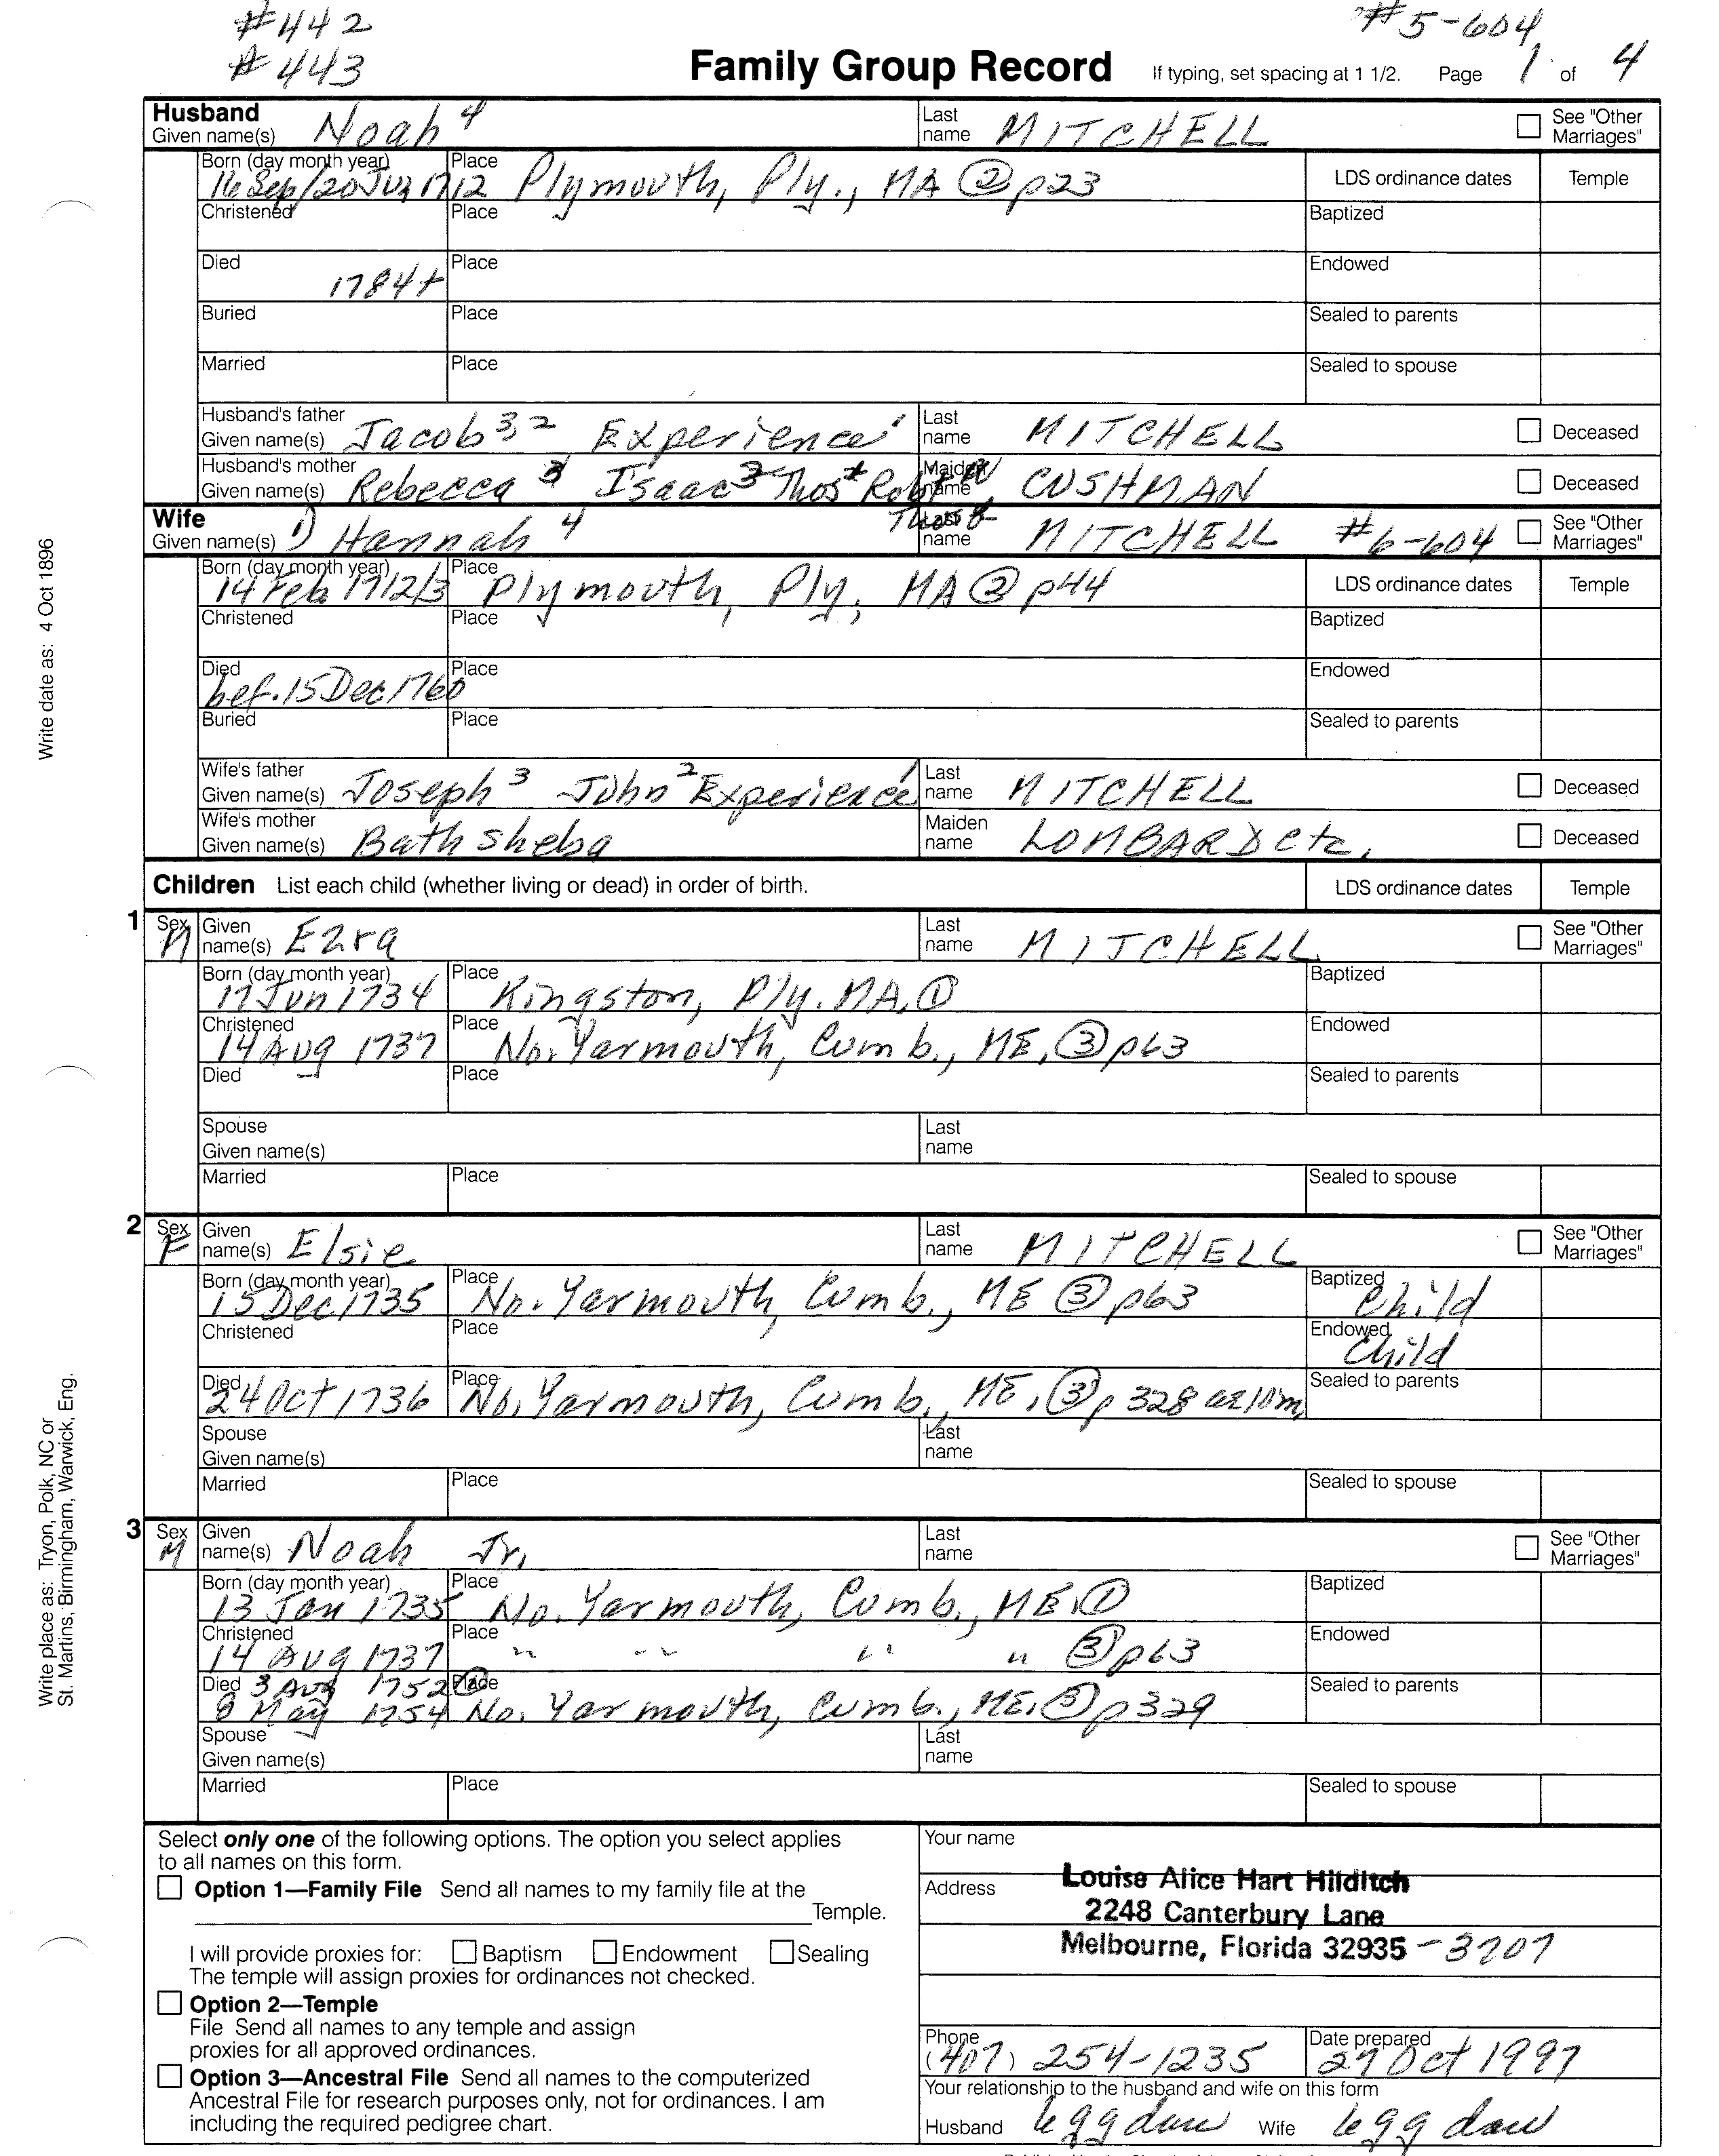 #442
#443
#5-604
Family Group Record If typing, set spacing at 1 1/2. Page 1 of 4
Husband
Given name(s) Noah 4 Last name MITCHELL See "Other Marriages"
Born (day month year) 16 Sep/20 1712 Place Plymouth, Ply., MA ② p23 LDS ordinance dates Temple
Christened Place Baptized
Died 1784+ Place Endowed
Buried Place Sealed to parents
Married Place Sealed to spouse
Husband's father
Given name(s) Jacob 3, 2 Experience 1 Last name MITCHELL Deceased
Husband's mother
Given name(s) Rebecca Isaac 3 Thos Maiden name CUSHMAN Deceased
Wife
Given name(s) 1) Hannah 4 Last name MITCHELL #6-604 See "Other Marriages"
Born (day month year) 14 Feb 1712/3 Place Plymouth, Ply, MA ② p44 LDS ordinance dates Temple
Christened Place Baptized
Died bef. 15 Dec 1760 Place Endowed
Buried Place Sealed to parents
Wife's father
Given name(s) Joseph 3 John 2 Experience 1 Last name MITCHELL Deceased
Wife's mother
Given name(s) Bathsheba Maiden name LOMBARD etc. Deceased
Children List each child (whether living or dead) in order of birth. LDS ordinance dates Temple
1 Sex M Given name(s) Ezra Last name MITCHELL See "Other Marriages"
Born (day month year) 17 Jun 1734 Place Kingston, Ply. MA, ① Baptized
Christened 14 Aug 1737 Place No. Yarmouth, Cumb., ME, ③ p63 Endowed
Died Place Sealed to parents
Spouse
Given name(s) Last name
Married Place Sealed to spouse
2 Sex F Given name(s) Elsie Last name MITCHELL See "Other Marriages"
Born (day month year) 15 Dec 1735 Place No. Yarmouth, Cumb., ME ③ p63 Baptized Child
Christened Place Endowed Child
Died 24 Oct 1736 Place No. Yarmouth, Cumb., ME, ③ p 328 ae 10m, Sealed to parents
Spouse
Given name(s) Last name
Married Place Sealed to spouse
3 Sex M Given name(s) Noah Jr. Last name See "Other Marriages"
Born (day month year) 13 Jan 1735 Place No. Yarmouth, Cumb., ME, ① Baptized
Christened 14 Aug 1737 Place " " " " ③ p63 Endowed
Died 3 Aug 1752 Place Sealed to parents
8 May 1754 No. Yarmouth, Cumb., ME, ③ p329
Spouse
Given name(s) Last name
Married Place Sealed to spouse
Select only one of the following options. The option you select applies
to all names on this form.
Option 1—Family File Send all names to my family file at the
Temple.
I will provide proxies for: Baptism Endowment Sealing
The temple will assign proxies for ordinances not checked.
Option 2—Temple
File Send all names to any temple and assign
proxies for all approved ordinances.
Option 3—Ancestral File Send all names to the computerized
Ancestral File for research purposes only, not for ordinances. I am
including the required pedigree chart.
Your name
Louise Alice Hart Hilditch
Address 2248 Canterbury Lane
Melbourne, Florida 32935 -3207
Phone (407) 254-1235 Date prepared 29 Oct 1997
Your relationship to the husband and wife on this form
Husband 6ggdau Wife 6ggdau
Write date as: 4 Oct 1896
Write place as: Tryon, Polk, NC or
St. Martins, Birmingham, Warwick, Eng.